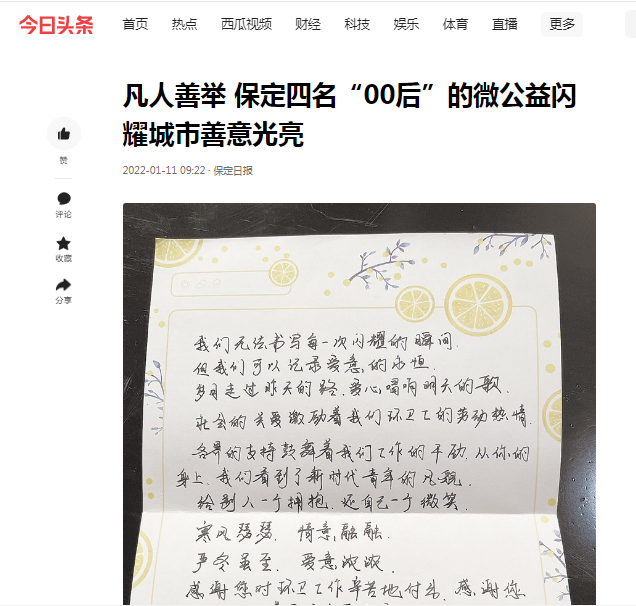 今日头条
首页 热点 西瓜视频 财经 科技 娱乐 体育 直播 更多
凡人善举 保定四名“00后”的微公益闪
耀城市善意光亮
2022-01-11 09:22 · 保定日报
赞
评论
收藏
分享
我们无法书写每一次闪耀的瞬间.
但我们可以记录爱意的永恒.
岁月走过昨天的路.爱心唱响明天的歌.
社会的关爱激励着我们环卫工的劳动热情.
各界的支持鼓舞着我们工作的干劲.从你的
身上.我们看到了新时代青年的风貌.
给别人一个拥抱.还自己一个微笑.
寒风瑟瑟. 情意融融.
严冬虽至. 爱意浓浓.
感谢您对环卫工作辛苦地付出.感谢您